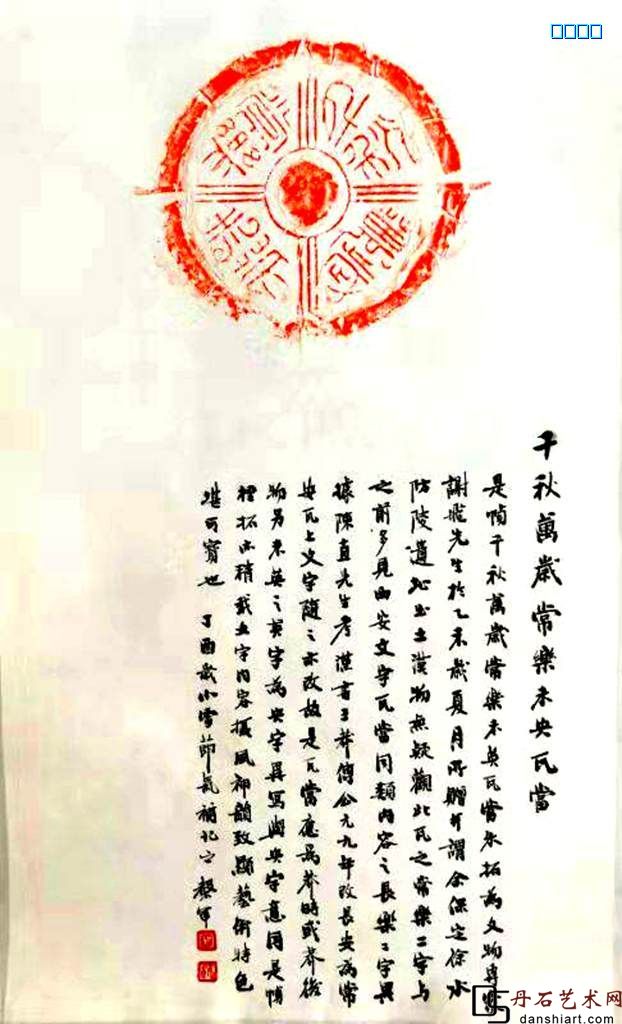 千秋萬歲常樂未央瓦當
是幀千秋萬歲常樂未英瓦當朱拓為文物專家
謝飛先生於乙未歲夏月所贈並謂余保定徐水
防陵遺址出土漢物無疑觀此瓦之常樂二字与
之前多見西安文字瓦當同類內容之長樂二字異
據陳直先生考漢書王莽傳公元九年改長安為常
安瓦上文字隨之亦改故是瓦當應為莽時或莽後
物另未英之英字為央字異寫與央字意同是幀
拓亦稍戟五字內容攝風神韻致顯藝術特色
堪可寶也 丁酉歲小雪節氣補記
丹石艺术网
danshiart.com